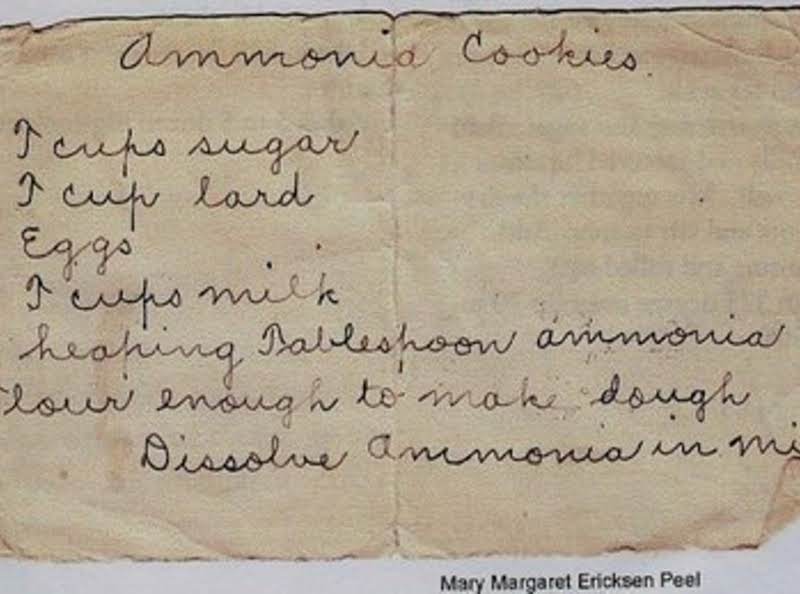 Ammonia Cookies
T cups sugar
T cup lard
Eggs
T cups milk
heaping Tablespoon ammonia
lour enough to make dough
Dissolve Ammonia in mi
Mary Margaret Ericksen Peel